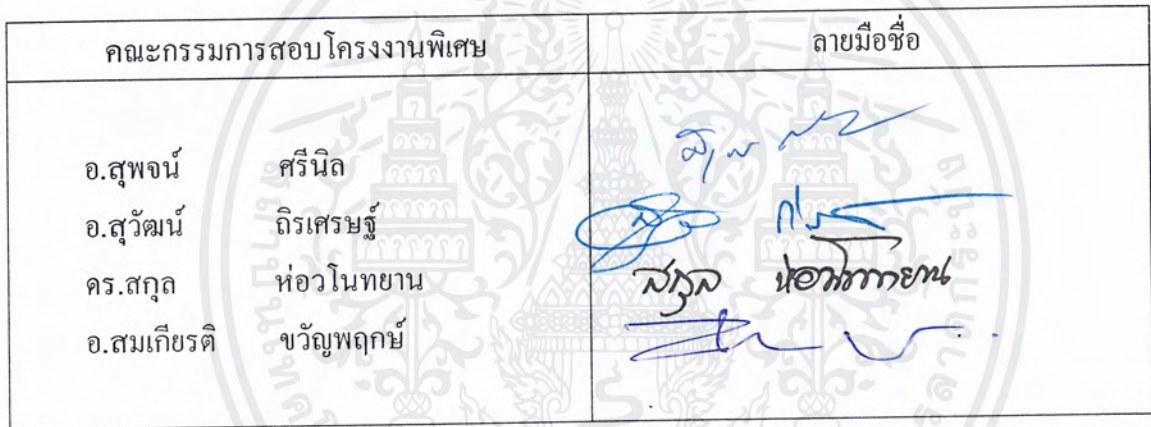 คณะกรรมการสอบโครงงานพิเศษ ลายมือชื่อ
อ.สุพจน์ ศรีนิล
อ.สุวัฒน์ ถิรเศรษฐ์
ดร.สกุล ห่อวโนทยาน สกุล ห่อวโนทยาน
อ.สมเกียรติ ขวัญพฤกษ์